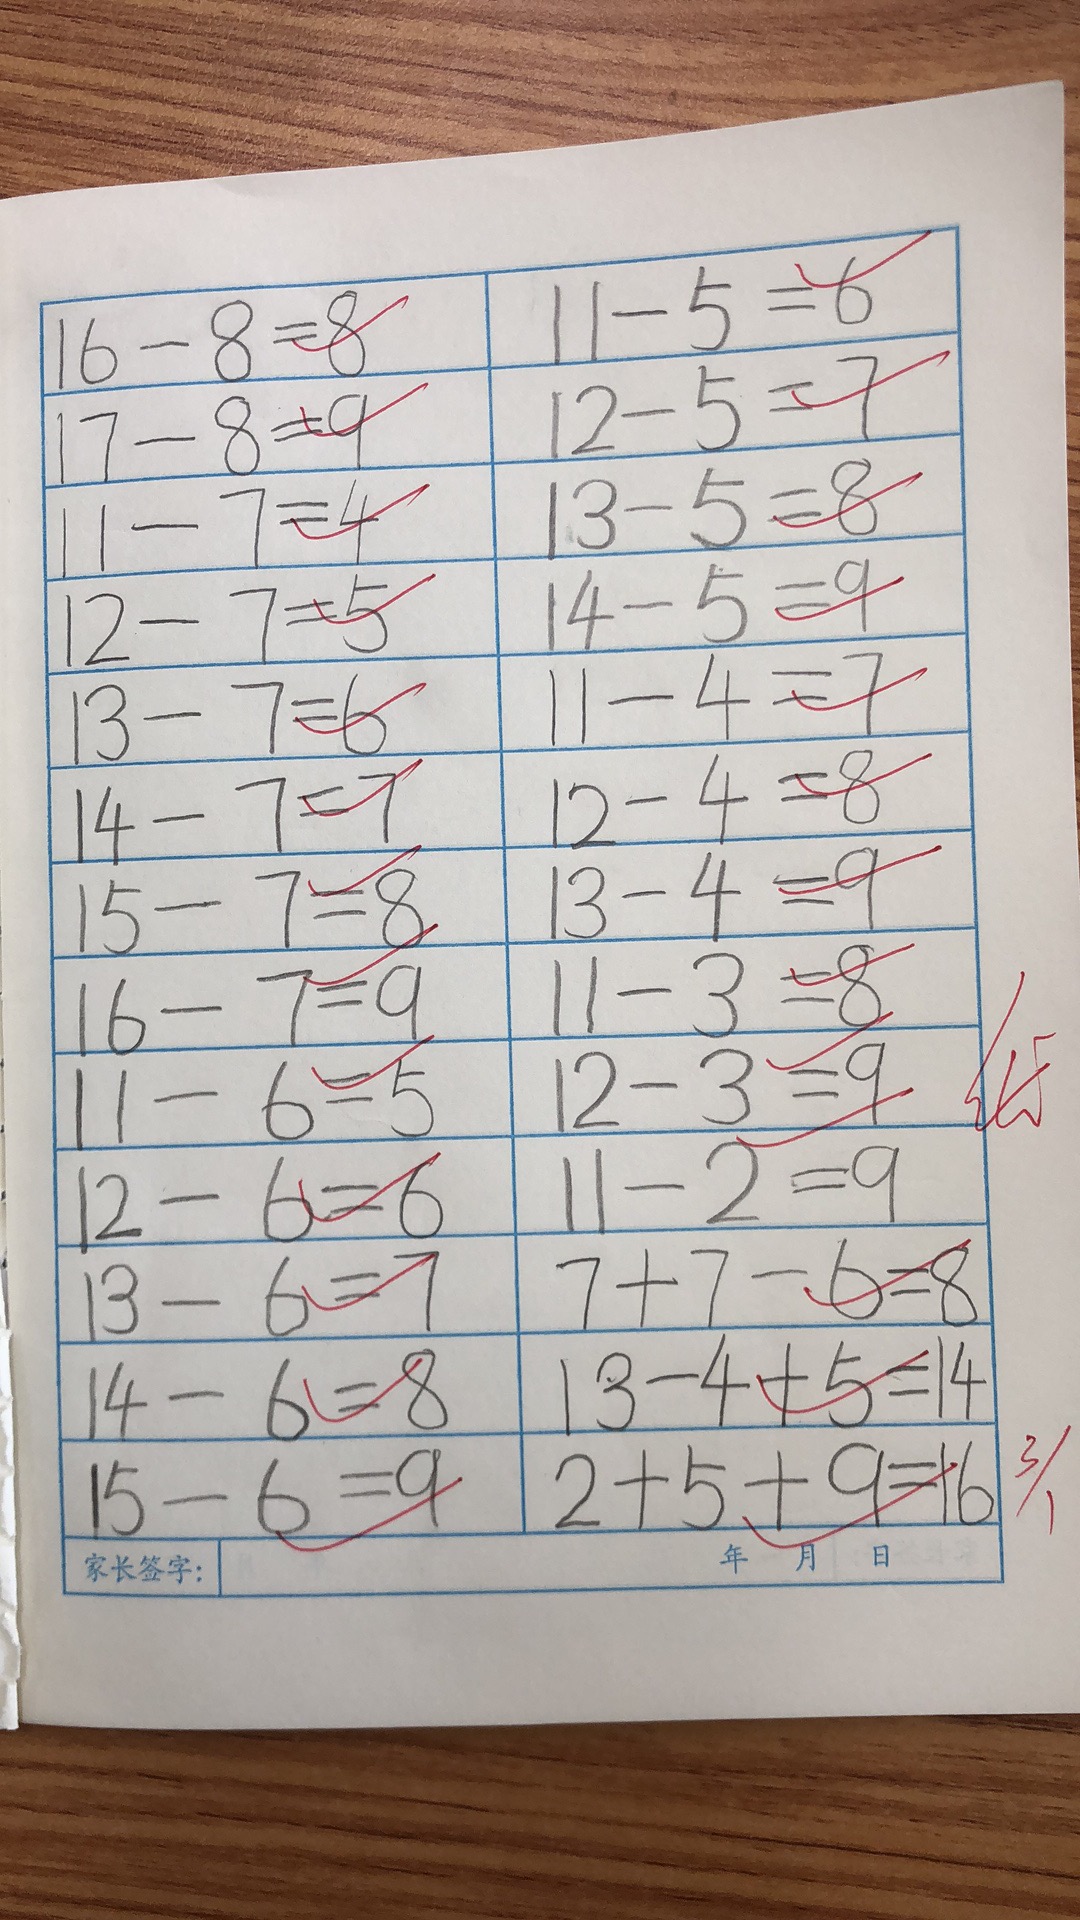 16-8=8
17-8=9
11-7=4
12-7=5
13-7=6
14-7=7
15-7=8
16-7=9
11-6=5
12-6=6
13-6=7
14-6=8
15-6=9
11-5=6
12-5=7
13-5=8
14-5=9
11-4=7
12-4=8
13-4=9
11-3=8
12-3=9
11-2=9
7+7-6=8
13-4+5=14
2+5+9=16
3/1
家长签字:
年 月 日